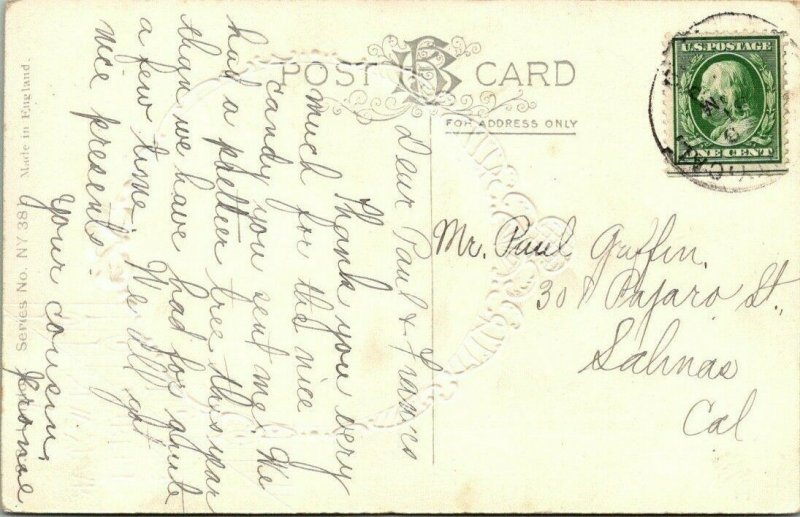 POST CARD
FOR ADDRESS ONLY
U.S. POSTAGE
ONE CENT
CAL
Mr. Paul Griffin,
308 Pajaro St,
Salinas
Cal
Dear Paul & Frances
Thank you very
much for the nice
candy you sent me. We
had a prettier tree this year
than we have had for quite
a few time. We all got
nice presents.
Your cousin,
Series No. NY 38 Made in England.